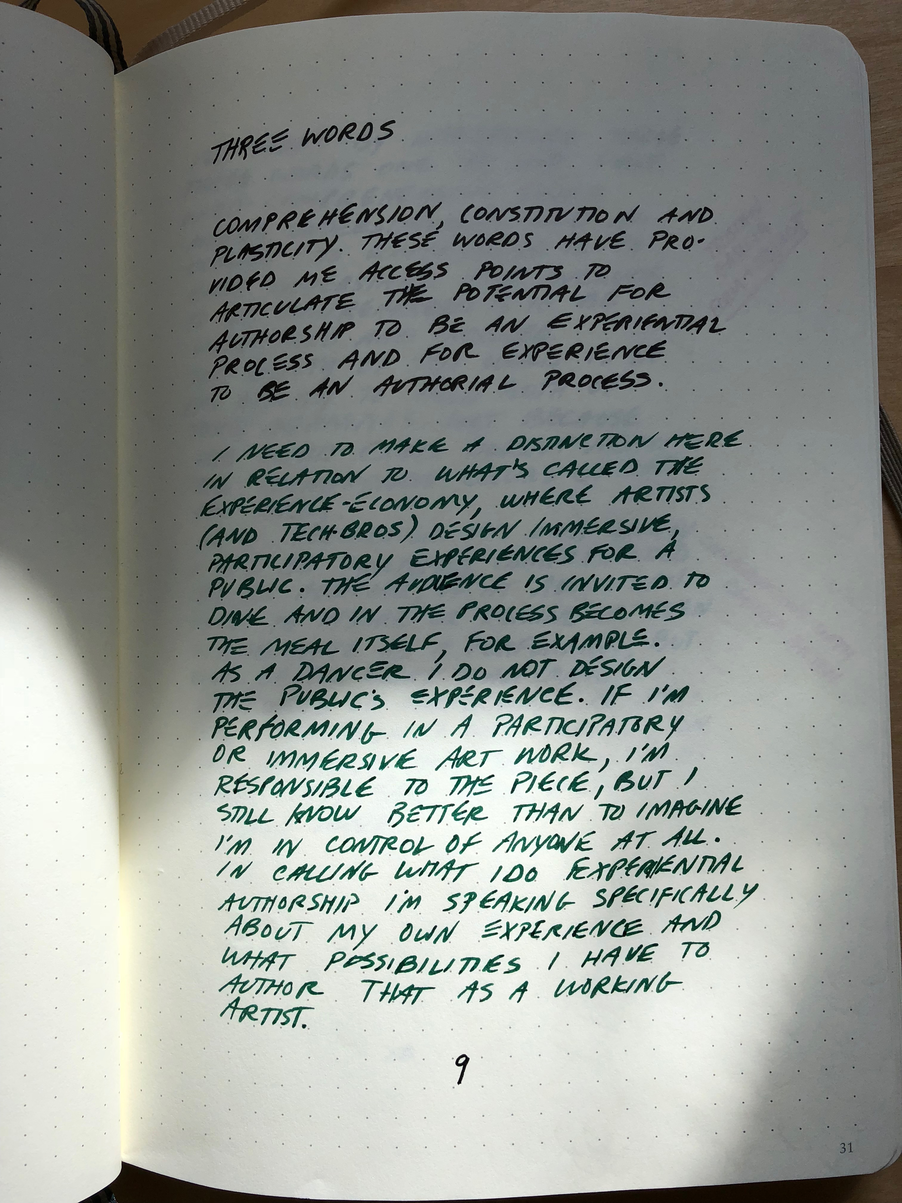 THREE WORDS
COMPREHENSION, CONSTITUTION AND
PLASTICITY. THESE WORDS HAVE PRO-
VIDED ME ACCESS POINTS TO
ARTICULATE THE POTENTIAL FOR
AUTHORSHIP TO BE AN EXPERIENTIAL
PROCESS AND FOR EXPERIENCE
TO BE AN AUTHORIAL PROCESS.
I NEED TO MAKE A DISTINCTION HERE
IN RELATION TO WHAT'S CALLED THE
EXPERIENCE-ECONOMY, WHERE ARTISTS
(AND TECH-BROS) DESIGN IMMERSIVE,
PARTICIPATORY EXPERIENCES FOR A
PUBLIC. THE AUDIENCE IS INVITED TO
DINE AND IN THE PROCESS BECOMES
THE MEAL ITSELF, FOR EXAMPLE.
AS A DANCER I DO NOT DESIGN
THE PUBLIC'S EXPERIENCE. IF I'M
PERFORMING IN A PARTICIPATORY
OR IMMERSIVE ART WORK, I'M
RESPONSIBLE TO THE PIECE, BUT I
STILL KNOW BETTER THAN TO IMAGINE
I'M IN CONTROL OF ANYONE AT ALL.
IN CALLING WHAT I DO EXPERIENTIAL
AUTHORSHIP I'M SPEAKING SPECIFICALLY
ABOUT MY OWN EXPERIENCE AND
WHAT POSSIBILITIES I HAVE TO
AUTHOR THAT AS A WORKING
ARTIST.
9
31